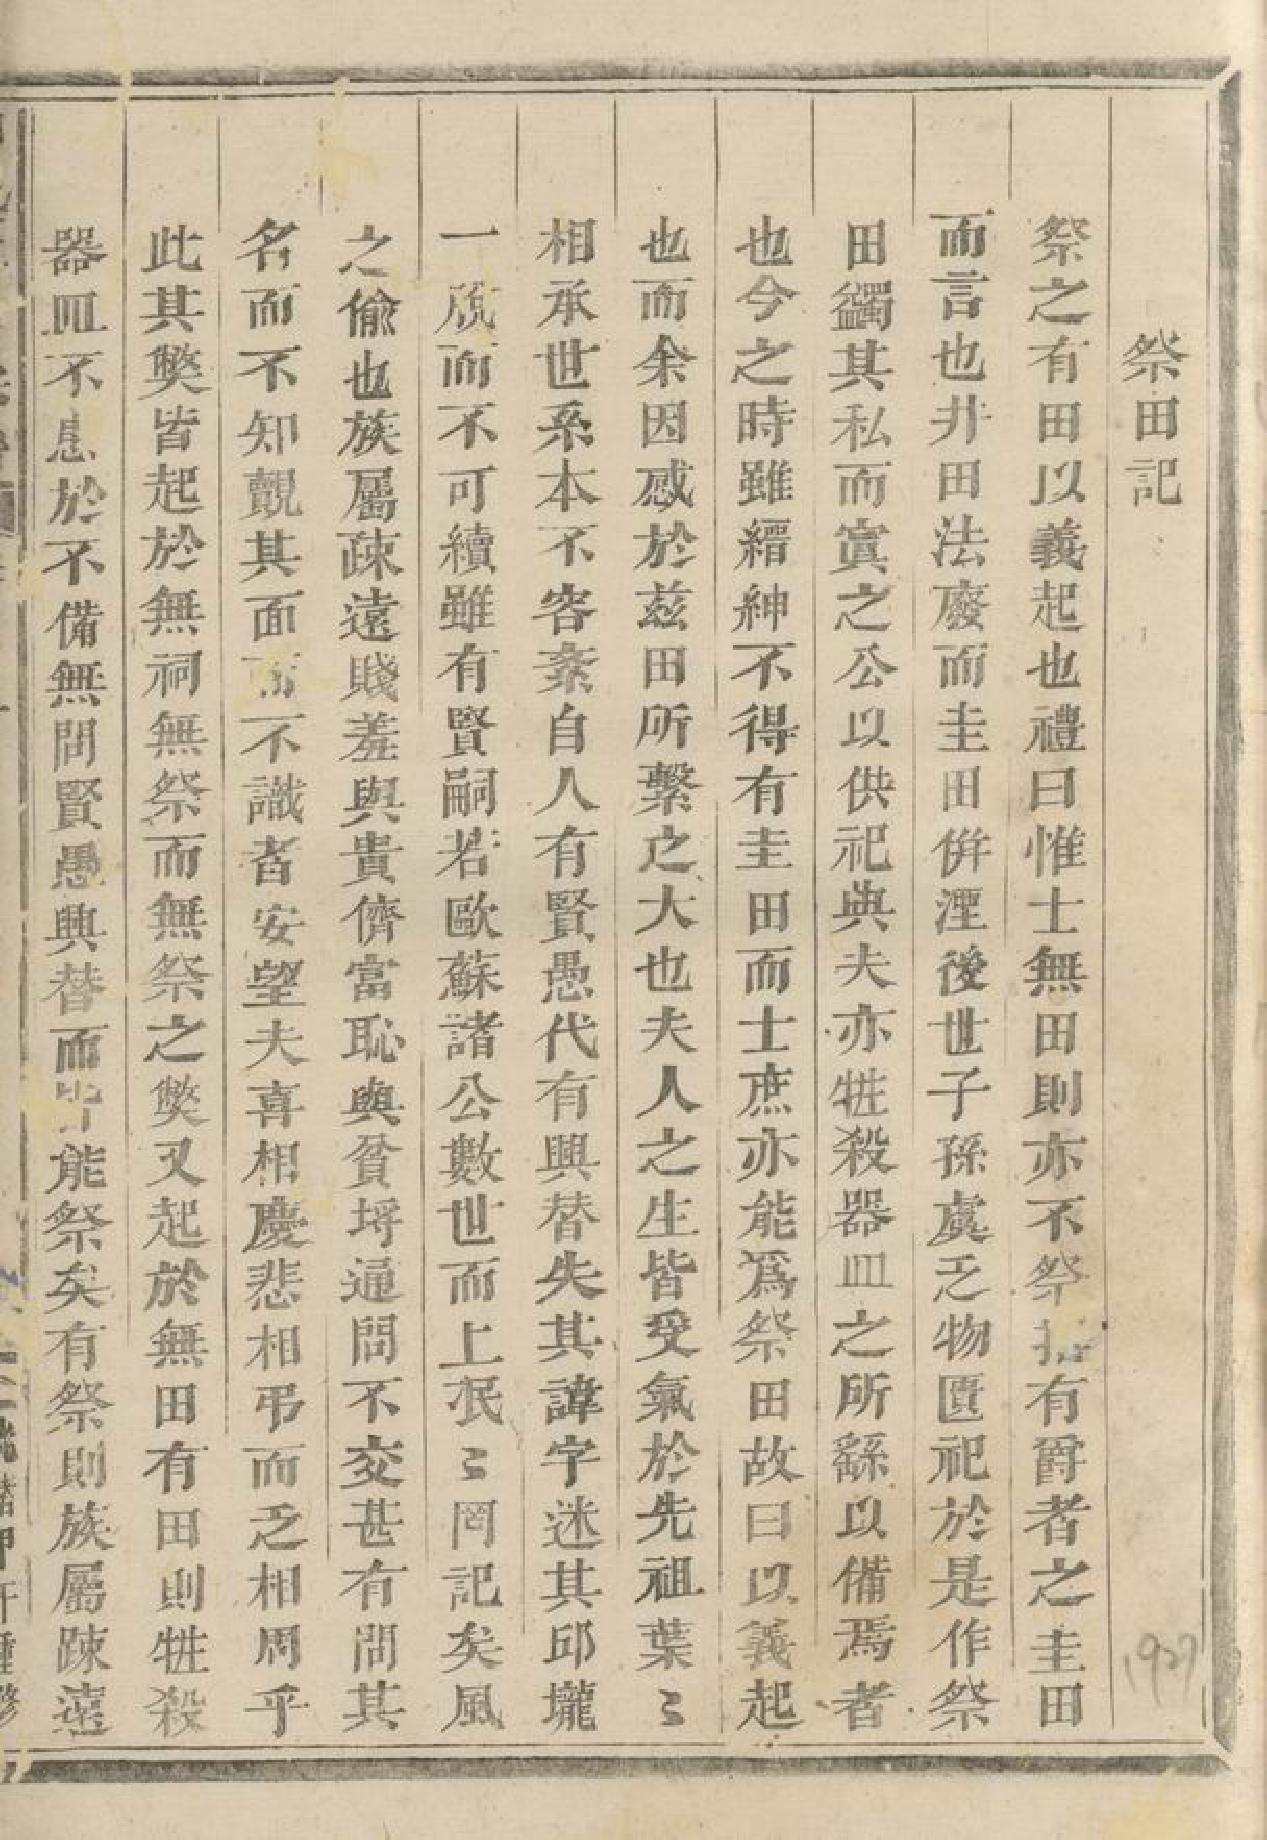 祭田記
祭之有田以義起也禮曰惟士無田則亦不祭指有爵者之圭田
而言也井田法廢而圭田倂湮後世子孫虞乏物匱祀於是作祭
田蠲其私而寘之公以供祀與夫亦牲殺器皿之所繇以備焉者
也今之時雖縉紳不得有圭田而士庶亦能爲祭田故曰以義起
也而余因感於兹田所繫之大也夫人之生皆受氣於先祖葉〻
相承世系本不容紊自人有賢愚代有興替失其諱字迷其邱壠
一脫而不可續雖有賢嗣若歐蘇諸公數世而上泯〻罔記矣風
之偸也族屬疎遠賤羞與貴儕富恥與貧埒通問不交甚有問其
名而不知覿其面而不識者安望夫喜相慶悲相弔而乏相周乎
此其獘皆起於無祠無祭而無祭之獘又起於無田有田則牲殺
器皿不患於不備無問賢愚興替而皆能祭矣有祭則族屬踈遠